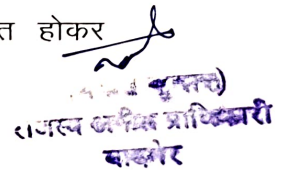 त होकर
राजस्व अपील प्राधिकारी
बाड़मेर